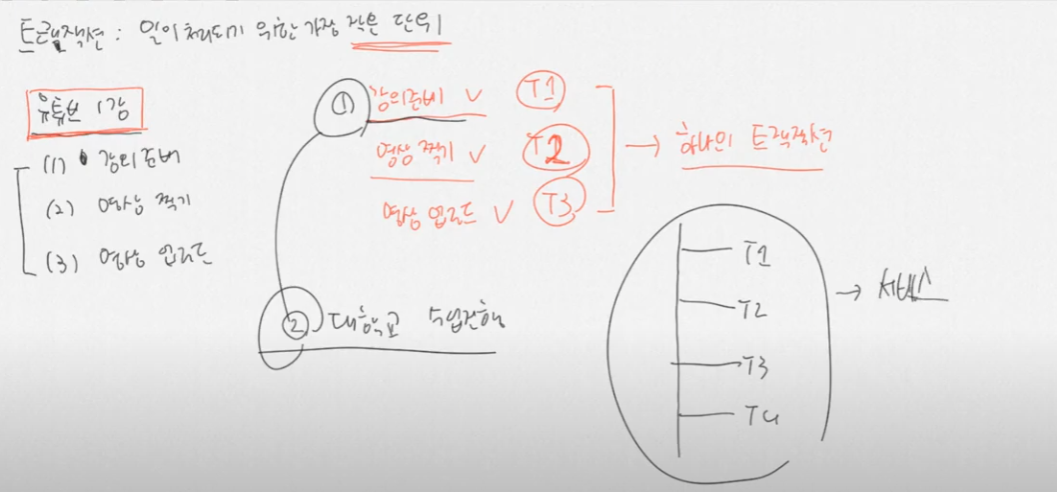 트랜잭션 : 일이 처리되기 위한 가장 작은 단위
유튜브 1강
(1) 강의준비
(2) 영상 찍기
(3) 영상 업로드
① 강의준비 ∨ T1
영상 찍기 ∨ T2
영상 업로드 ∨ T3
→ 하나의 트랜잭션
② 대학교 수업진행
T1
T2
T3
T4
→ 서비스